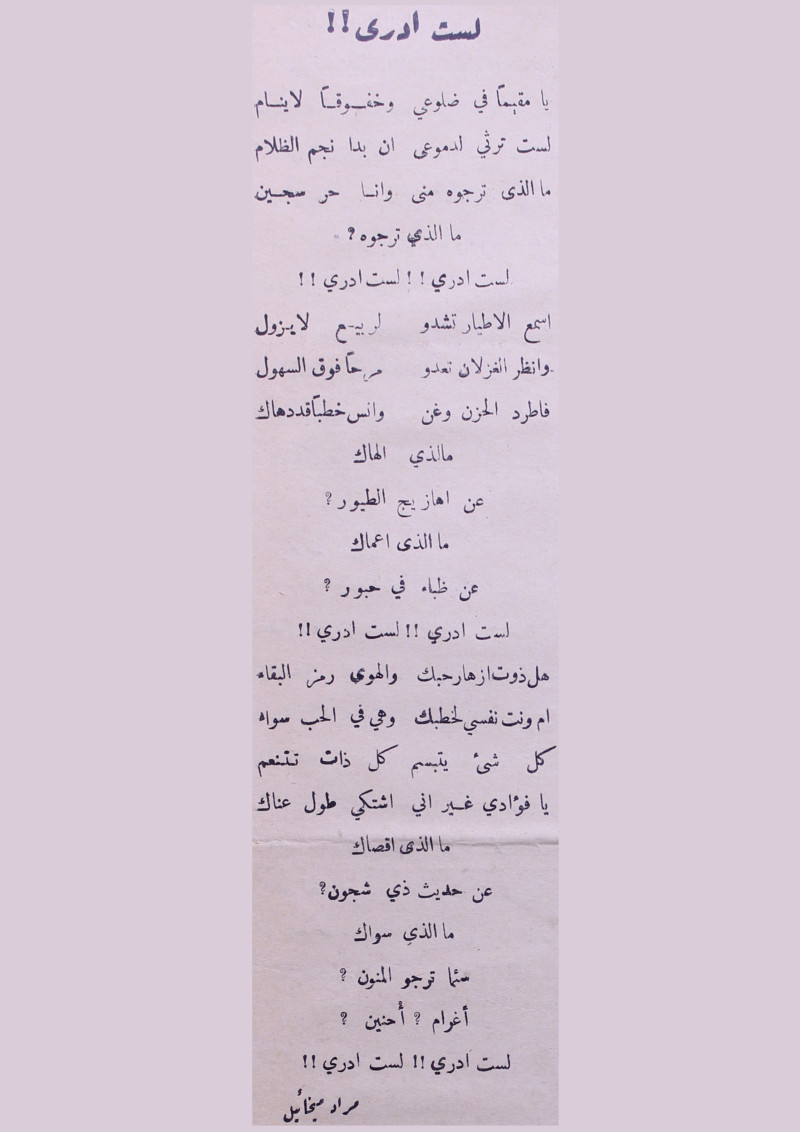 لست ادرى !!
يا مقيماً في ضلوعي وخفـوقـاً لاينـام
لست ترثي لدموعى ان بدا نجم الظلام
ما الذى ترجوه منى وانـا حر سجـين
ما الذي ترجوه ؟
لست ادري !! لست ادري !!
اسمع الاطيار تشدو لربيـع لايـزول
وانظر الغزلان تعدو مرحاً فوق السهول
فاطرد الحزن وغن وانس خطباً قد دهاك
مالذي الهاك
عن اهازيج الطيور ؟
ما الذى اعماك
عن ظباء في حبور ؟
لست ادري !! لست ادري !!
هل ذوت ازهار حبك والهوي رمز البقاء
ام ونت نفسي لخطبك وهي في الحب سواه
كل شئ يتبسم كل ذات تتنعم
يا فؤادي غـير اني اشتكي طول عناك
ما الذى اقصاك
عن حديث ذي شجون؟
ما الذي سواك
سئما ترجو المنون ؟
أغرام ؟ أحنين ؟
لست ادري !! لست ادري !!
مراد ميخائيل